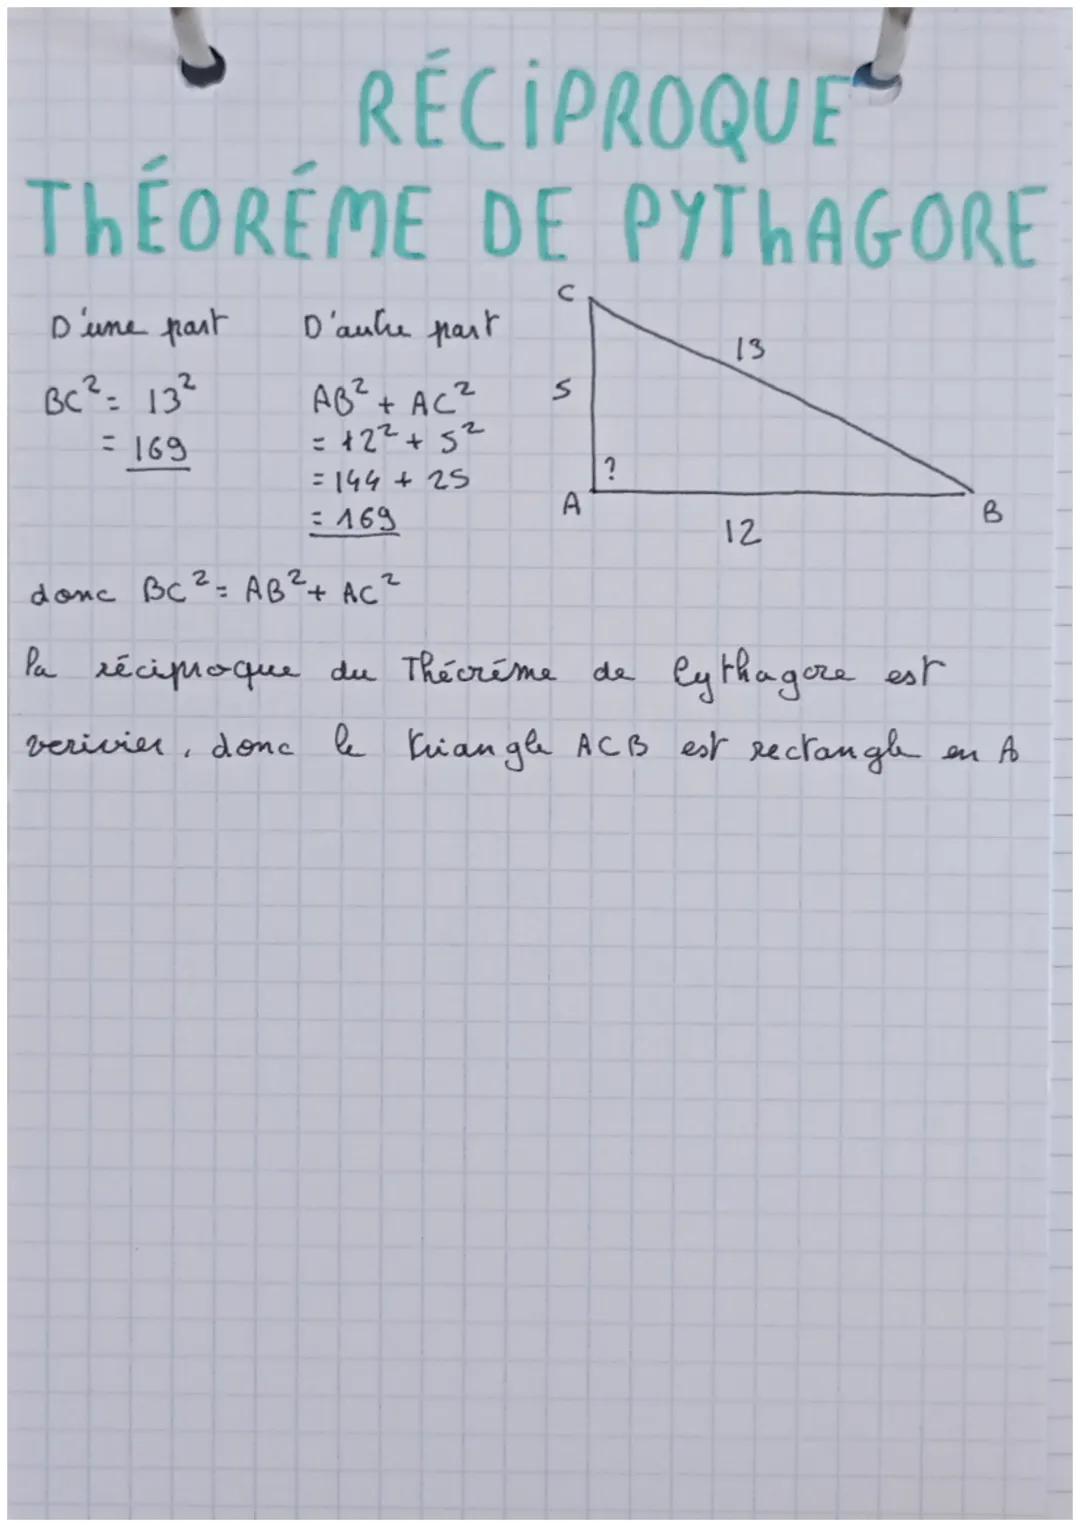 RÉCIPROQUE
THÉORÉME DE PYTHAGORE
D'une part
BC² = 13²
= 169
D'autre part
AB² + AC²
= 12² + 5²
= 144 + 25
= 169
C
13
5
?
A
B
12
donc BC² = AB² + AC²
la réciproque du Théoréme de Pythagore est
verivier, donc le triangle ACB est rectangle en A